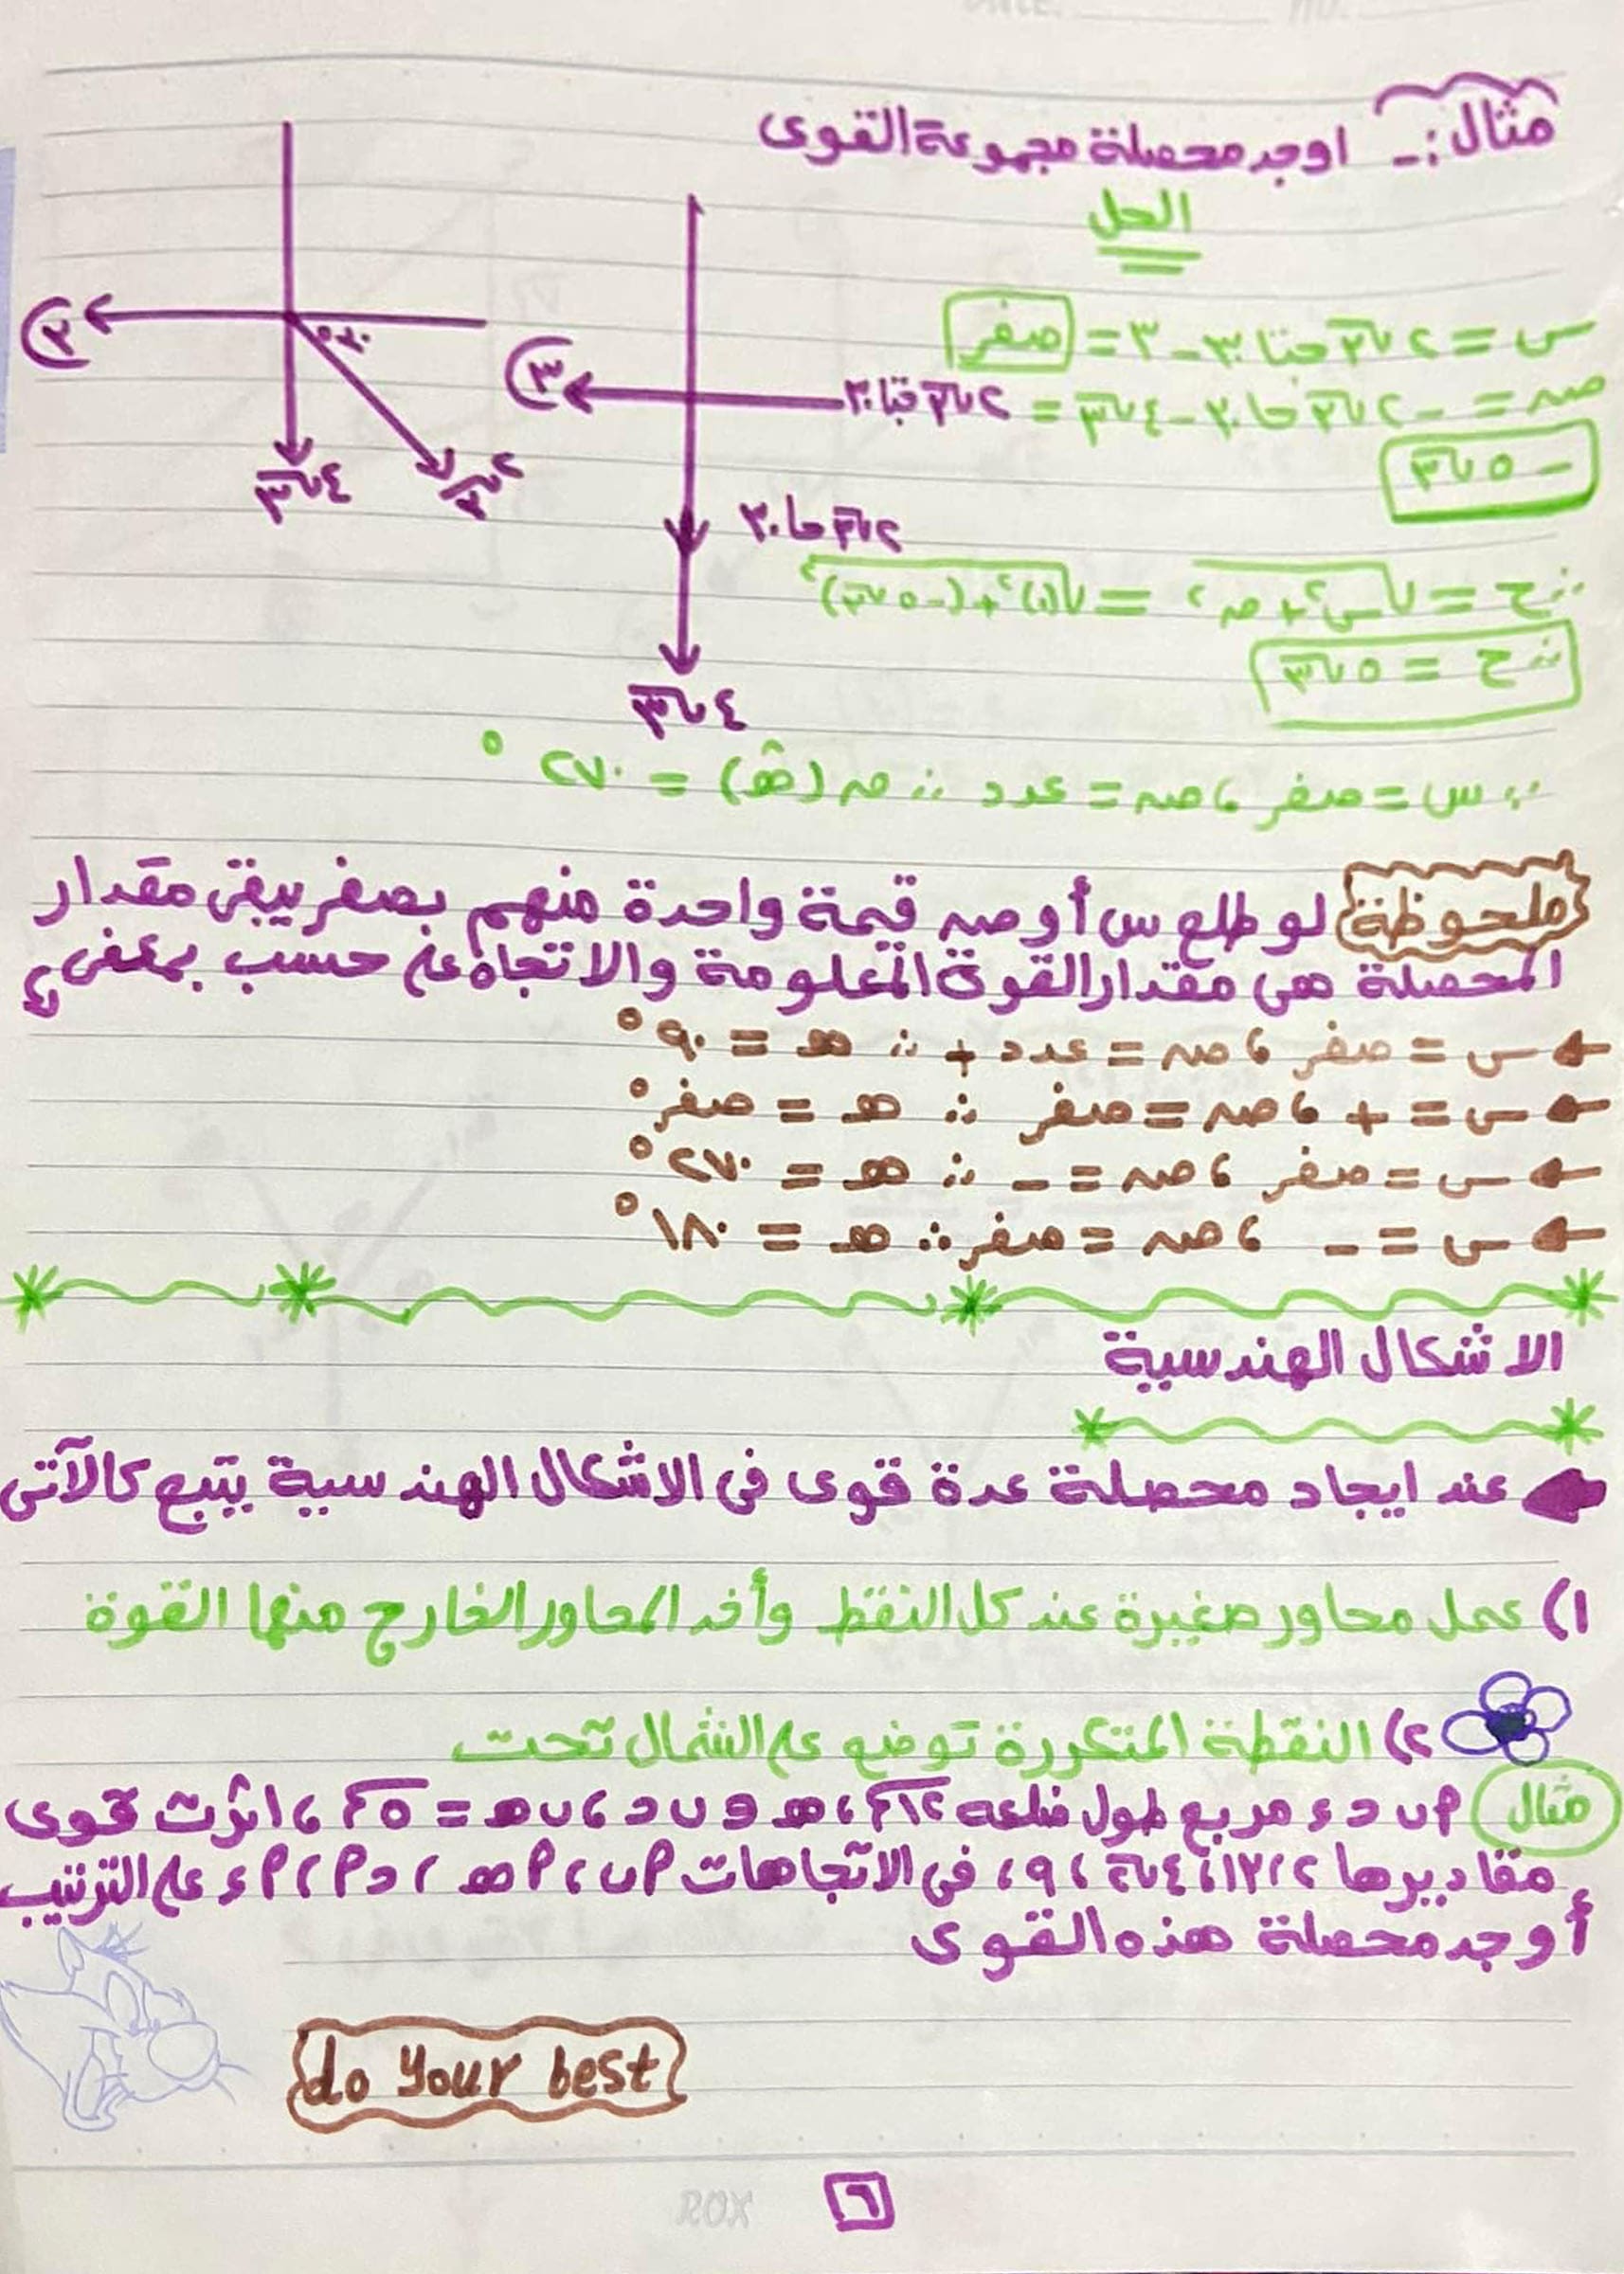 مثال :- اوجد محصلة مجموعة القوى
الحل
س = ٢√٣ حتا ٣٠ - ٣ = صفر
صـ = - ٢√٣ حا ٣٠ - ٤√٣ =
- ٥√٣
∴ ح = √س٢ + ص٢ = √(٠)٢ + (-٥√٣)٢
∴ ح = ٥√٣
∵ س = صفر ، صـ = عدد ∴ ص (هـ) = ٢٧٠°
٣
٣٠°
٤√٣
٢√٣
٣
٢√٣ حتا ٣٠
٢√٣ حا ٣٠
٤√٣
ملحوظة لو طلع س أو صـ قيمة واحدة منهم بصفر يبقى مقدار
المحصلة هى مقدار القوة المعلومة والاتجاه على حسب بمعنى
← س = صفر ، صـ = عدد + ∴ هـ = ٩٠°
← س = + ، صـ = صفر ∴ هـ = صفر°
← س = صفر ، صـ = - ∴ هـ = ٢٧٠°
← س = - ، صـ = صفر ∴ هـ = ١٨٠°
الاشكال الهندسية
عند ايجاد محصلة عدة قوى فى الاشكال الهندسية يتبع كالآتى
١) عمل محاور صغيرة عند كل النقط وأخد المحاور الخارج منها القوة
٢) النقطة المتكررة توضع على الشمال تحت
مثال أ ب حـ ء مربع طول ضلعه ١٢سم ، هـ ∈ ب حـ ، ب هـ = ٥سم ، اثرت قوى
مقاديرها ٢ ، ١٣ ، ٤√٢ ، ٩ ، فى الاتجاهات أ ب ، أ هـ ، حـ أ ، أ ء على الترتيب
أوجد محصلة هذه القوى
do your best
ROX
٦